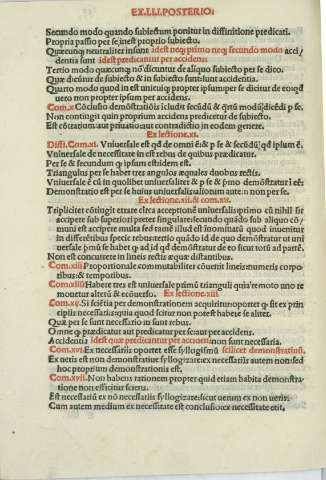 EX.LI.POSTERIO:
Secundo modo quando subiectum ponitur in diffinitione predicati.
Propria passio per se inest proprio subiecto.
Quæcunq; neutraliter insunt idest neq; primo neq; secundo modo acci/
dentia sunt idest predicantur per accidens.
Tertio modo quæcunq; nō dicuntur de aliquo subiecto per se dico.
Quæ dicuntur de subiecto & in subiecto sunt:sunt accidentia.
Quarto modo quod in est unicuiq; propter ipsum:per se dicitur de eo:qd
uero non propter ipsum per accidens.
Com.x Cōclusio demōstratiōis īcludit
Non contingit quin proprium accidens predicetur de subiecto.
Est cōtrarium aut priuatio:aut contradictio in eodem genere.
Ex lectione.xi.
Diffi.Com.xi. Vniuersale est qd de omni ē:& p se & secūdū qd ipsum ē.
Vniuersale de necessitate in est rebus de quibus prædicatur.
Per se & secundum q ipsum est:idem est.
Triangulus per se habet tres angulos æquales duobus rectis.
Vniuersale cū in quolibet uniuersaliter & p se & pmo demōstratur:ī eē:
Demonstratio est per se huius uniuersalis:aliorum autem non per se.
Ex lectione.xii.& com.xii.
Tripliciter cōtingit errare circa acceptionē uniuersalis:primo cū nihil fit
accipere sub superiori preter singulare:secundo quādo sub aliquo cō/
muni est accipere multa sed tamē illud est īnomīatū quod inuenitur
in differētibus specie rebus:tertio quādo id de quo demōstratur ut uni
uersale pmū se habet q ad id qd demōstratur de eo sicut totū ad partē.
Non est concurrere in lineis rectis æque distantibus.
Com.xiii Proportionale commutabiliter cōuenit lineis:numeris corpo/
ribus:& temporibus.
Com.xiiii Habere tres est uniuersale primū trianguli:quia remoto uno re
monetur alterū & ecōuerso. Ex lectione.xiii.
Com.xv. Si scietia per demonstrationem acquiritur:oportet q sit ex prin
cipiis necessariis:quia quod scitur non potest habere se aliter.
Quæ per se sunt necessario in sunt rebus.
Omne q prædicatur aut predicatur per se:aut per accidens.
Accidentia idest quæ predicantur per accidens non sunt necessaria.
Com.xvi. Ex necessariis oportet esse syllogismū scilicet demonstratiuū.
Ex ueris est non demonstratiue syllogizare:ex necessariis autem non:sed
hoc proprium demonstrationis est.
Com.xvii. Non habens rationem propter quid etiam habita demonstra/
tione non efficitur sciens.
Est necessariū ex nō necessariis syllogizare:sicut uerum ex non ueris.
Cum autem medium ex necessitate est conclusio:ex necessitate erit.